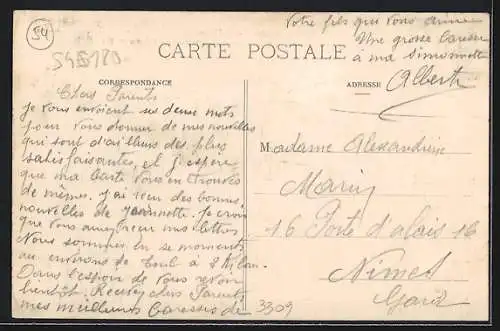 54
545180
Votre fils qui vous aime
Une grosse caresse
à ma Simonnette
Albert
CARTE POSTALE
CORRESPONDANCE
ADRESSE
Chers Parents
Je vous envoient ses deux mots
pour vous donner de mes nouvelles
qui sont d'ailleurs des plus
satisfaisantes, et j'espere
que ma carte vous en trouvés
de mêmes. J'ai reçu des bonnes
nouvelles de Jeannette. Je crois
que vous avez reçu mes lettres
Nous sommes en se moment
au environs de Toul à 8 Kilom.
Dans l'espoir de vous revoir
bientôt. Recevez chers Parents
mes meilleurs caresses de
Madame Alexandrine
Marin
16 Porte d'alais 16
Nimes
Gard
3309